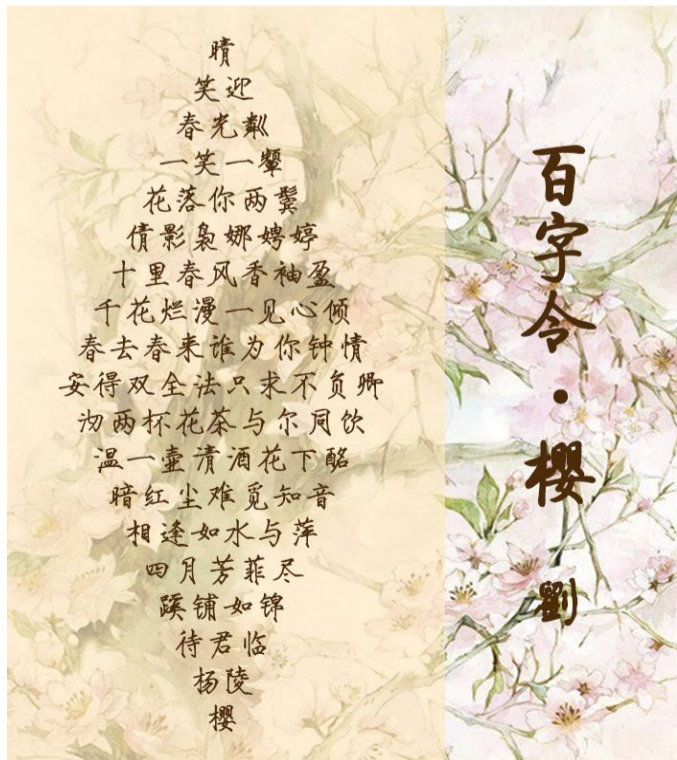 晴
笑迎
春光粼
一笑一颦
花落你两鬓
倩影袅娜娉婷
十里春风香袖盈
千花烂漫一见心倾
春去春来谁为你钟情
安得双全法只求不负卿
沏两杯花茶与尔同饮
温一壶清酒花下酩
暗红尘难觅知音
相逢如水与萍
四月芳菲尽
蹊铺如锦
待君临
杨陵
樱
百字令·樱
劉